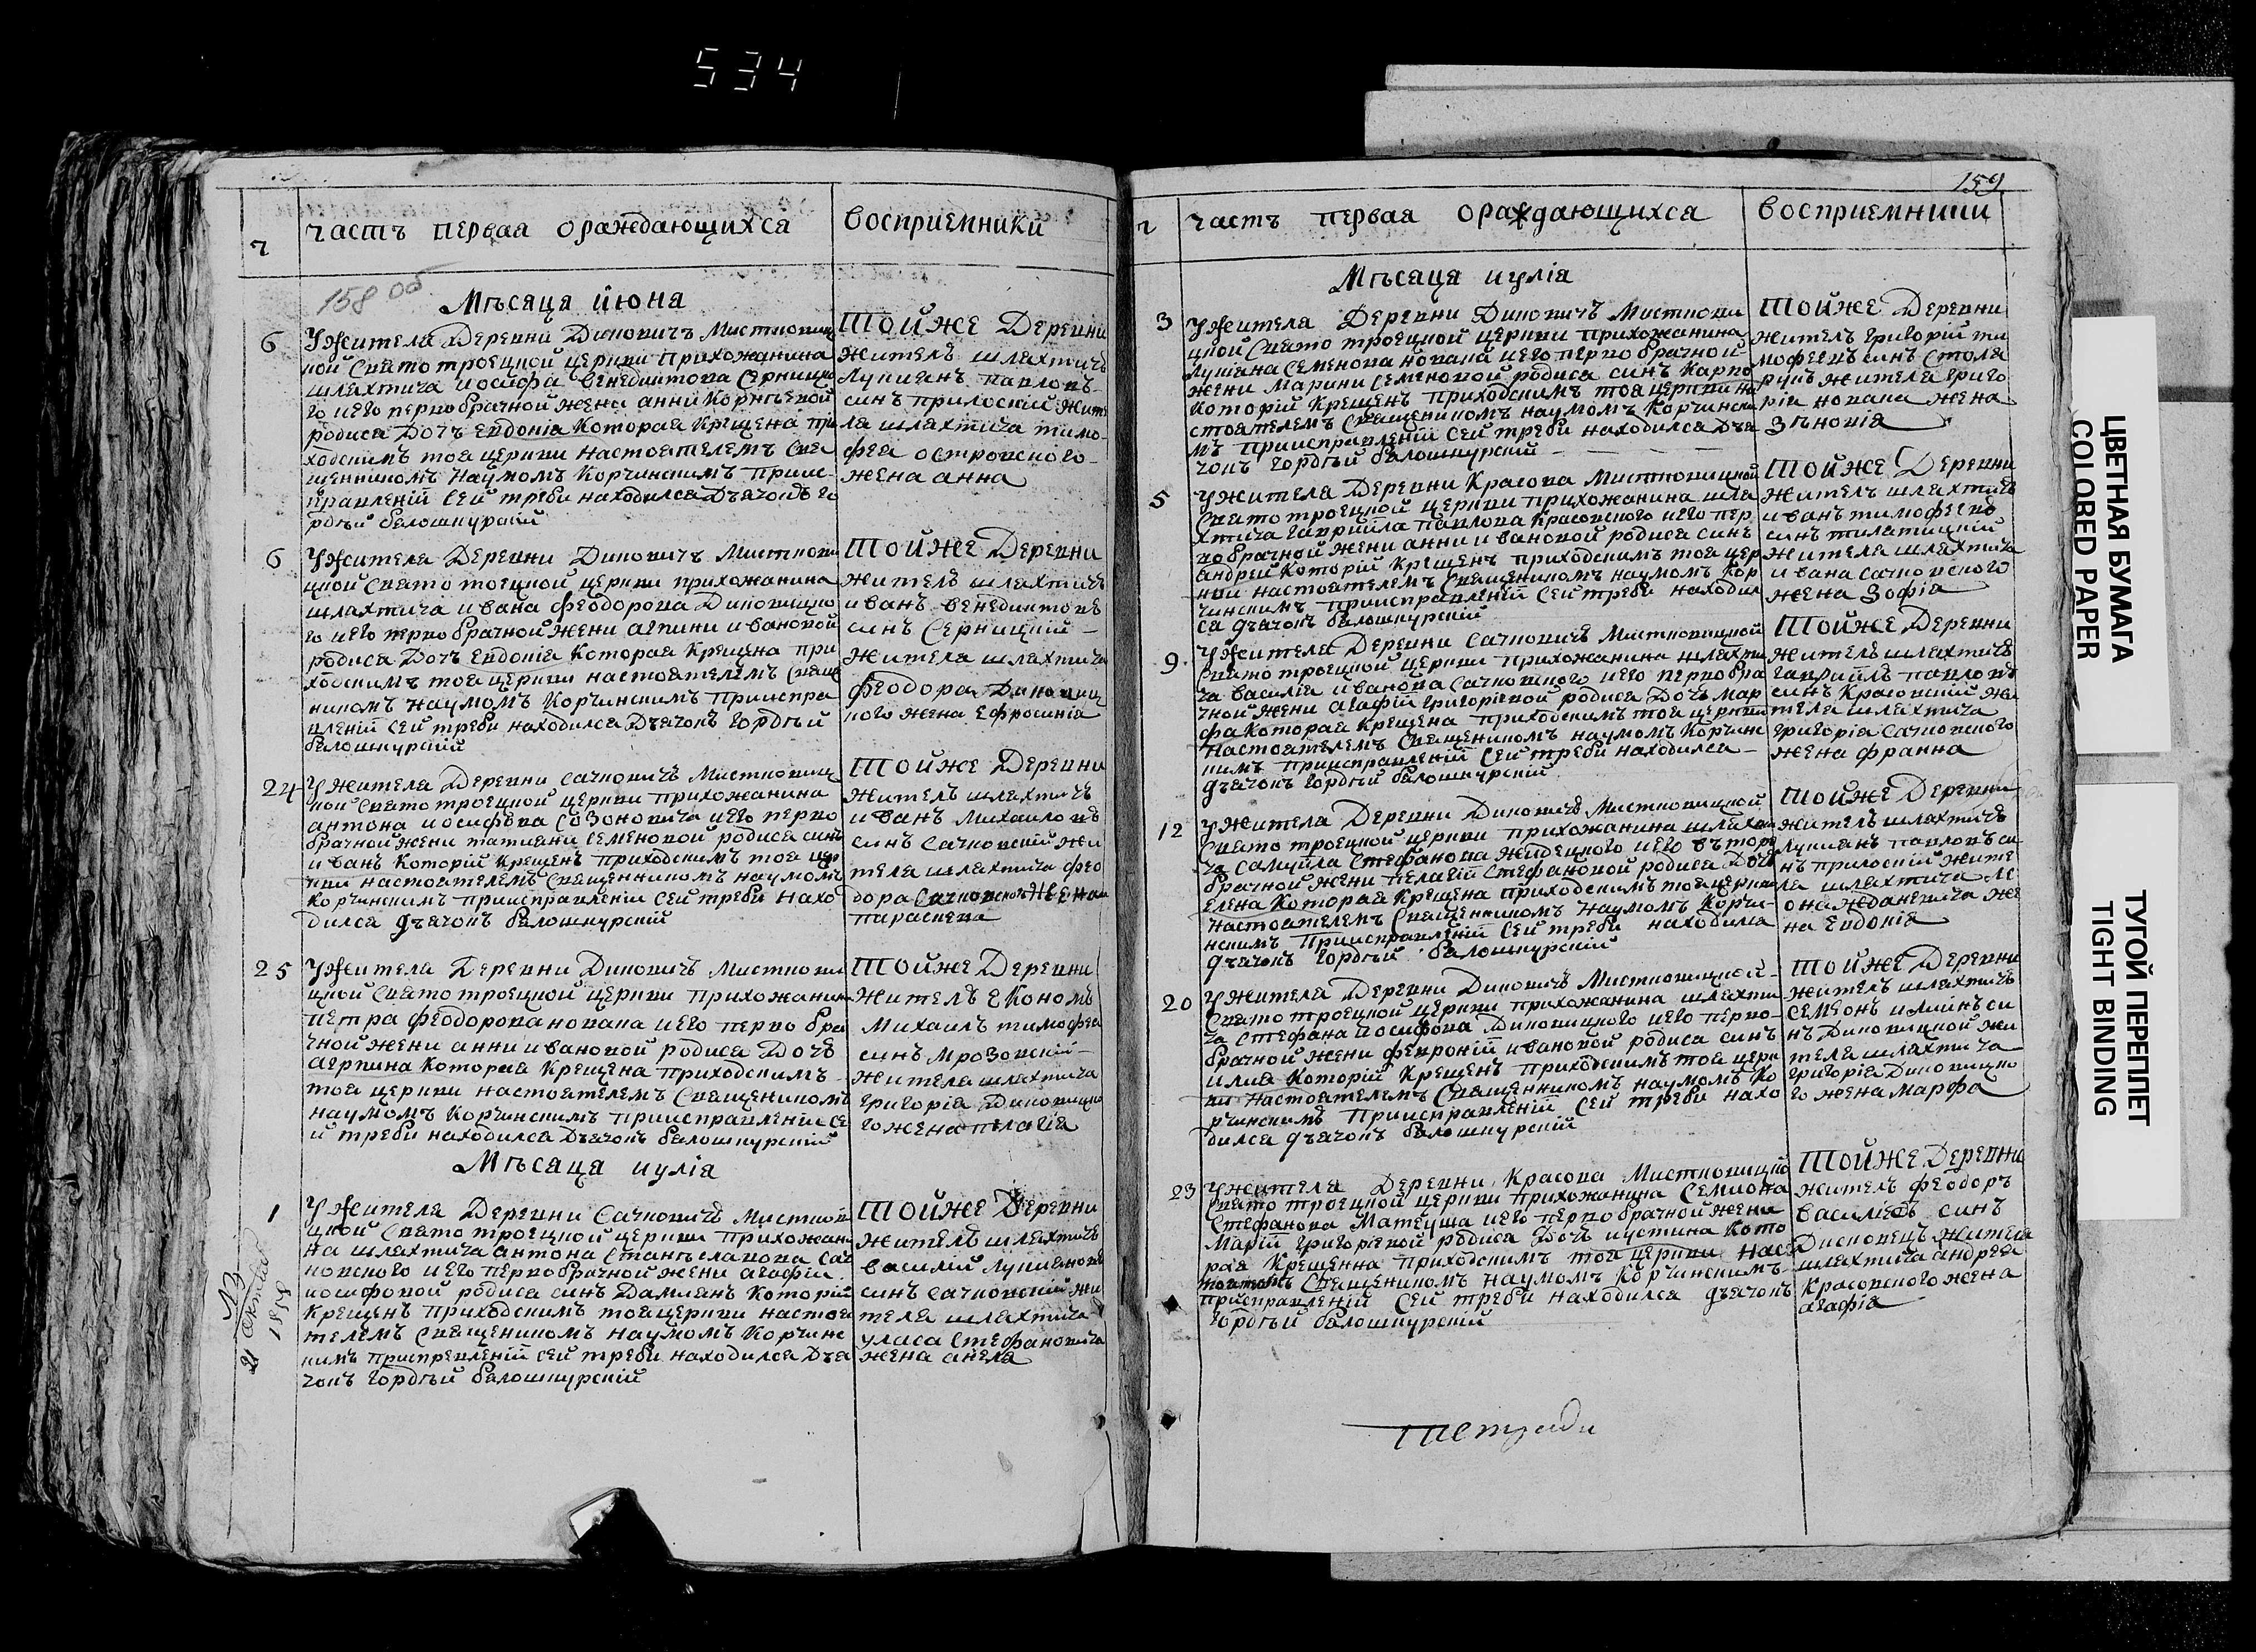 534
159
ч
часть первая ораждающихся
восприемники
158 об
Мѣсяца июна
6
Ужителя Деревни Диновичъ Мистковиц
кой Свято троецкой церкви прихожанина
шляхтича иосифа венедиктова Серницко
го иего перво брачной жени анни Корнѣевой
родися Дочъ Евдокіа Которая Крещена при
ходскимъ тоя церкви настоятелемъ Свя
щенникомъ Наумомъ Корчинскимъ приис
правленіи Сей треби находился Дъячокъ го
рдѣй белошкурскій
Тойже Деревни
жителъ шляхтичъ
Лукианъ павловъ
синъ прилоскій жите
ля шляхтича тимо
фея островского
жена анна
6
Ужителя Деревни Диновичъ Мисткови
цкой Свято тоецкой церкви прихожанина
шляхтича ивана феодорова Диновицко
го иего перво брачной жени агпини ивановой
родися Дочъ Евдокіа Которая Крещена при
ходскимъ тоя церкви настоятелемъ Свящ
никомъ Наумомъ Корчинскимъ приисправ
вленіи Сей треби находился Дъячокъ гордѣй
белошкурскій
Тойже Деревни
жителъ шляхтичъ
иванъ венедиктовъ
синъ Серницкій
жителя шляхтича
феодора Диновиц
кого жена Ефросиніа
24
Ужителя Деревни Сачковичъ Мистковиц
кой Свято троецкой церкви прихожанина
антона иосифова Созоновича иего перво
брачной жени татиани Семеновой родися синъ
иванъ Которій Крещенъ приходскимъ тоя цер
кви настоятелемъ Священникомъ наумомъ
Корчинскимъ приисправленіи Сей треби нахо
дился дъячокъ белошкурскій
Тойже Деревни
жителъ шляхтичъ
иванъ Михаиловъ
синъ Сачковскій жи
теля шляхтича фео
дора Сачковской жена
параскева
25
Ужителя Деревни Диновичъ Мисткови
цкой Свято троецкой церкви прихожанин
петра феодорова новака иего перво бра
чной жени анни ивановой родися Дочъ
агрпина Которая Крещена приходскимъ
тоя церкви настоятелемъ Священикомъ
наумомъ Корчинскимъ приисправленіи Се
и треби находился Дъячокъ белошкурскій
Тойже Деревни
Жителъ економъ
Михаилъ тимофея
синъ Мрозовскій
Жителя шляхтича
григоріа Диновицко
го жена пелагіа
Мѣсаца иуліа
1
Ужителя Деревни Сачковичъ Мисткови
цкой Свято троецкой церкви прихожани
на шляхтича антона Станѣславова Сач
ковского иего перво брачной жени агафіи
иосифовой родися синъ Дамианъ Которій
Крещенъ приходскимъ тоя церкви настоя
телемъ Священикомъ наумомъ Корчинс
кимъ приспревленіи сей треби находился Дъя
чокъ гордѣй белошкурскій
Тойже Деревни
жителъ шляхтичъ
василій Лукиановъ
синъ Сачковскій жи
теля шляхтича
уласа Стефановича
жена анеля
ч
часть первая ораждающихся
восприемники
Мѣсаца иуліа
3
Ужителя Деревни Диновичъ Мисткови
цкой Свято троецкой церкви прихожанина
Лукиана Семенова новака иего перво брачной
жени Марини Семеновой родися синъ Карпо
Которій Крещенъ приходскимъ тоя церкви на
стоятелемъ Священикомъ наумомъ Корчински
мъ приисправленіи Сей треби находился Дъя
чокъ гордѣй белошкурскій
Тойже Деревни
жителъ григорій ти
мофеевъ синъ Столя
рукъ жителя григо
ріа новака жена
Зѣновіа
5
Ужителя Деревни Красова Мистковицкой
Свято троецкой церкви прихожанина шля
хтича гавриила павлова Красовского иего пер
во брачной жени анни ивановой родися синъ
андрей Которій Крещенъ приходскимъ тоя цер
кви настоятелемъ Священикомъ наумомъ Кор
чинскимъ приисправленіи Сей треби находил
ся дъячокъ белошкурскій
Тойже Деревни
жителъ шляхтичъ
иванъ тимофеево
синъ тилатицкій
жителя шляхтича
ивана Сачковского
жена Зофіа
9
Ужителя Деревни Сачковичъ Мистковицкой
Свято троецкой церкви прихожанина шляхти
ча василіа иванова Сачковского иего первобра
чной жени агафіи григоріевой родися Дочъ Мар
фа Которая Крещена приходскимъ тоя церкви
настоятелемъ Священикомъ наумомъ Корчинс
кимъ приисправленіи Сей треби находился
дъячокъ гордѣй белошкурскій
Тойже Деревни
жителъ шляхтичъ
гавриилъ павловъ
синъ Красовскій жи
теля шляхтича
григоріа Сачковского
жена франка
12
Ужителя Деревни Диновичъ Мистковицкой
Свято троецкой церкви прихожанина шляхти
ча Самуила Стефанова Жидецкого иего въторо
брачной жени пелагіи Стефановой родися Дочъ
Елена Которая Крещена приходскимъ тоя церкви
настоятелемъ Священникомъ Наумомъ Корчи
нскимъ приисправленіи Сей треби находился
дъячокъ гордѣй белошкурскій
Тойже Деревни
жителъ шляхтичъ
Лукианъ павловъ си
нъ прилоскій жите
ля шляхтича Ле
она Жданевича же
на Евдокіа
20
Ужителя Деревни Диновичъ Мистковицкой
Свято троецкой церкви прихожанина шляхти
ча Стефана иосифова Диновицкого иего перво
брачной жени февроніи ивановой родися синъ
илиа Которій Крещенъ приходскимъ тоя церк
ви настоятелемъ Священникомъ наумомъ Ко
рчинскимъ приисправленіи Сей треби нахо
дился дъячокъ белошкурскій
Тойже Деревни
жителъ шляхтичъ
Семеонъ илиинъ си
нъ Диновицкой жи
теля шляхтича
григоріа Диновицко
го жена Марфа
23
Ужителя Деревни Красова Мистковицкой
Свято троецкой церкви прихожанина Семиона
Стефанова Матеуша иего перво брачной жени
Маріи григоріевой родися Дочъ иустина Кото
рая Крещенна приходскимъ тоя церкви Наст
оятелемъ Священикомъ наумомъ Корчинскимъ
приисправленіи Сей треби находился дъячокъ
гордѣй белошкурскій
Тойже Деревни
жителъ феодоръ
василіевъ синъ
Дисковецъ жителя
шляхтича андреа
Красовского жена
агафіа
ЦВЕТНАЯ БУМАГА
COLORED PAPER
ТУГОЙ ПЕРЕПЛЕТ
TIGHT BINDING